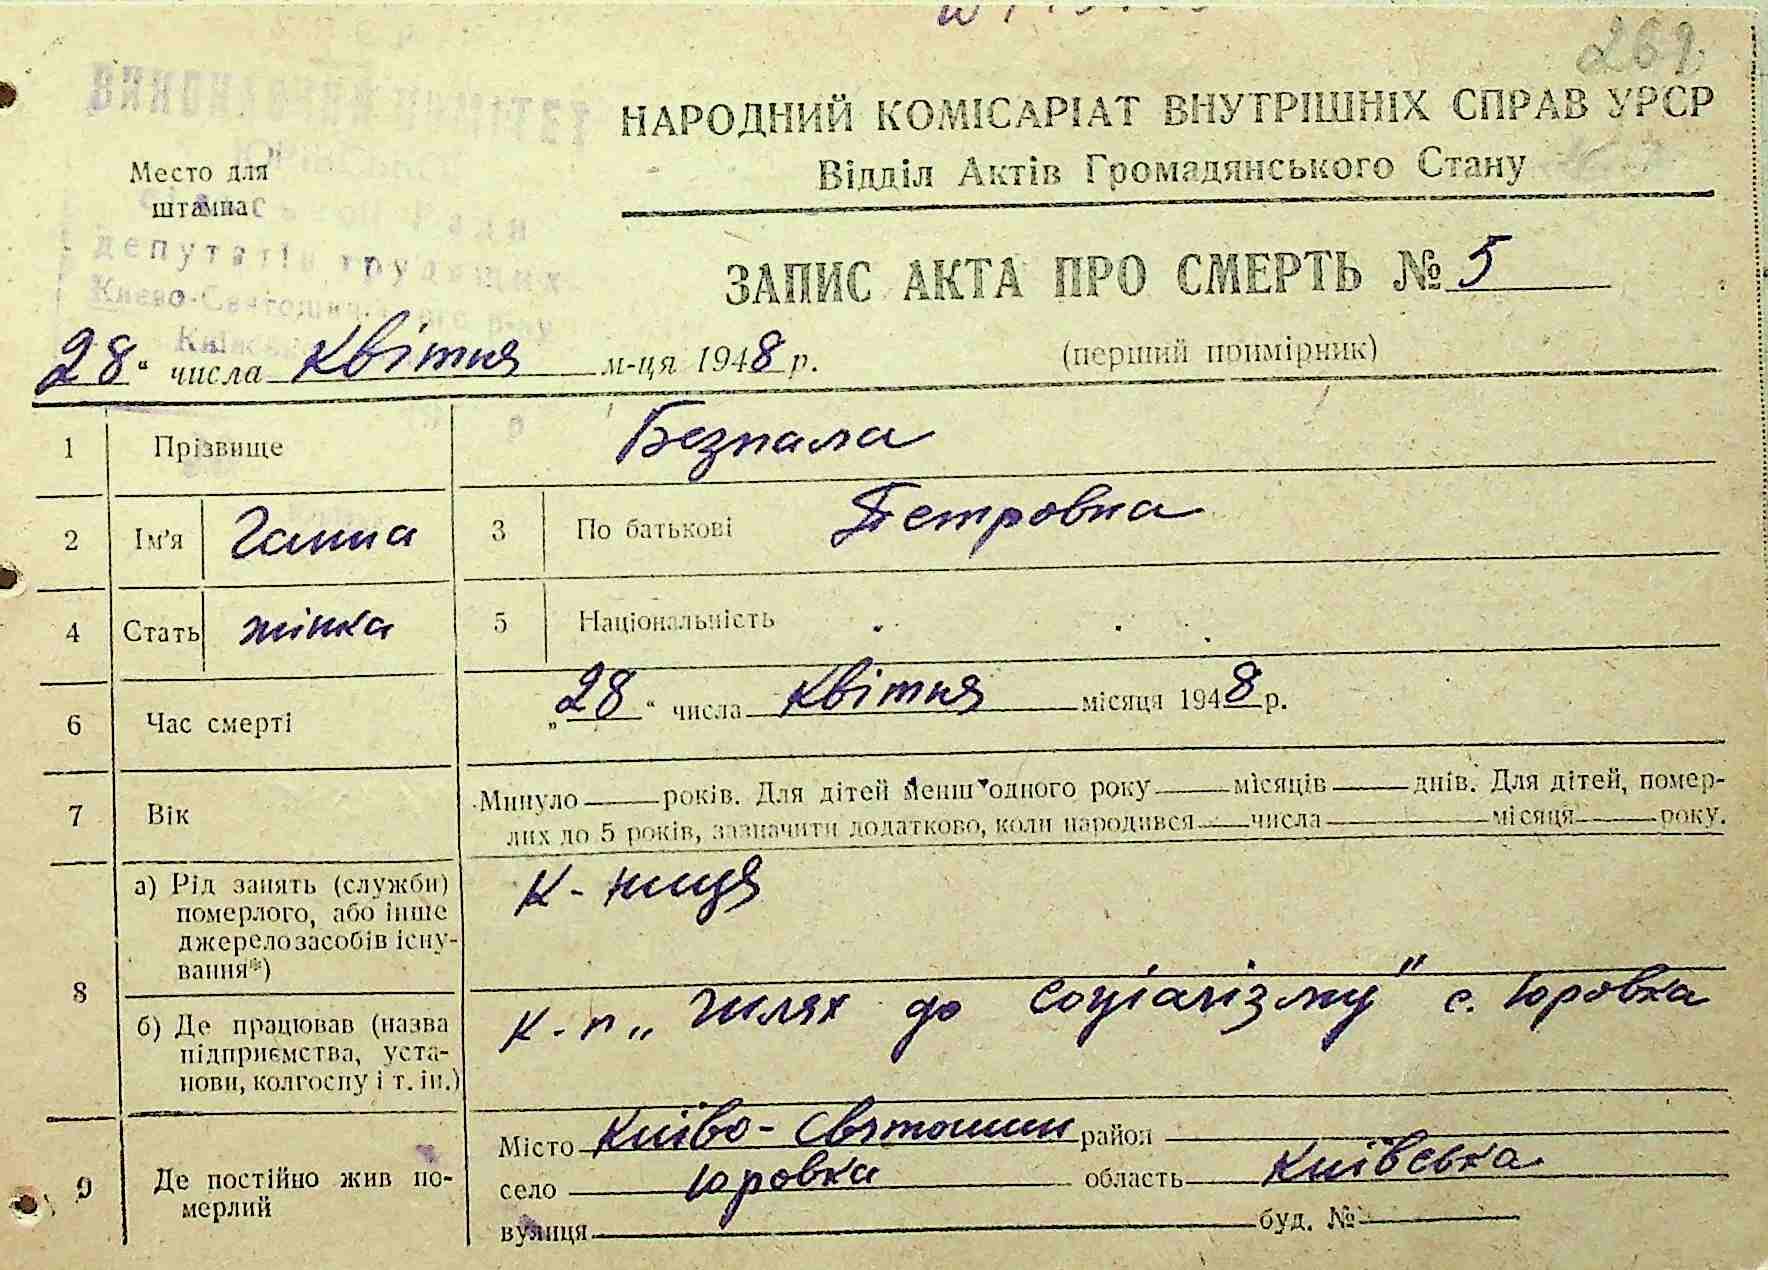 269
НАРОДНИЙ КОМІСАРІАТ ВНУТРІШНІХ СПРАВ УРСР
Відділ Актів Громадянського Стану
Место для
штампа
депутатів трудящих
Києво-Святошинського р-ну
ЗАПИС АКТА ПРО СМЕРТЬ № 5
28 “ числа квітня м-ця 1948 р.
(перший примірник)
1 Прізвище Безпала
2 Ім'я Ганна 3 По батькові Петровна
4 Стать жінка 5 Національність
6 Час смерті „28“ числа квітня місяця 1948 р.
7 Вік Минуло ___ років. Для дітей менш одного року ___ місяців ___ днів. Для дітей, помер-
лих до 5 років, зазначити додатково, коли народився ___ числа ___ місяця ___ року.
8 а) Рід занять (служби)
померлого, або інше
джерело засобів існу-
вання*)
К-ниця
б) Де працював (назва
підприємства, уста-
нови, колгоспу і т. ін.)
К-п „Шлях до соціалізму" с. Юровка
9 Де постійно жив по-
мерлий
Місто Київо-Святошин район
село Юровка область Київська
вулиця ___ буд. №